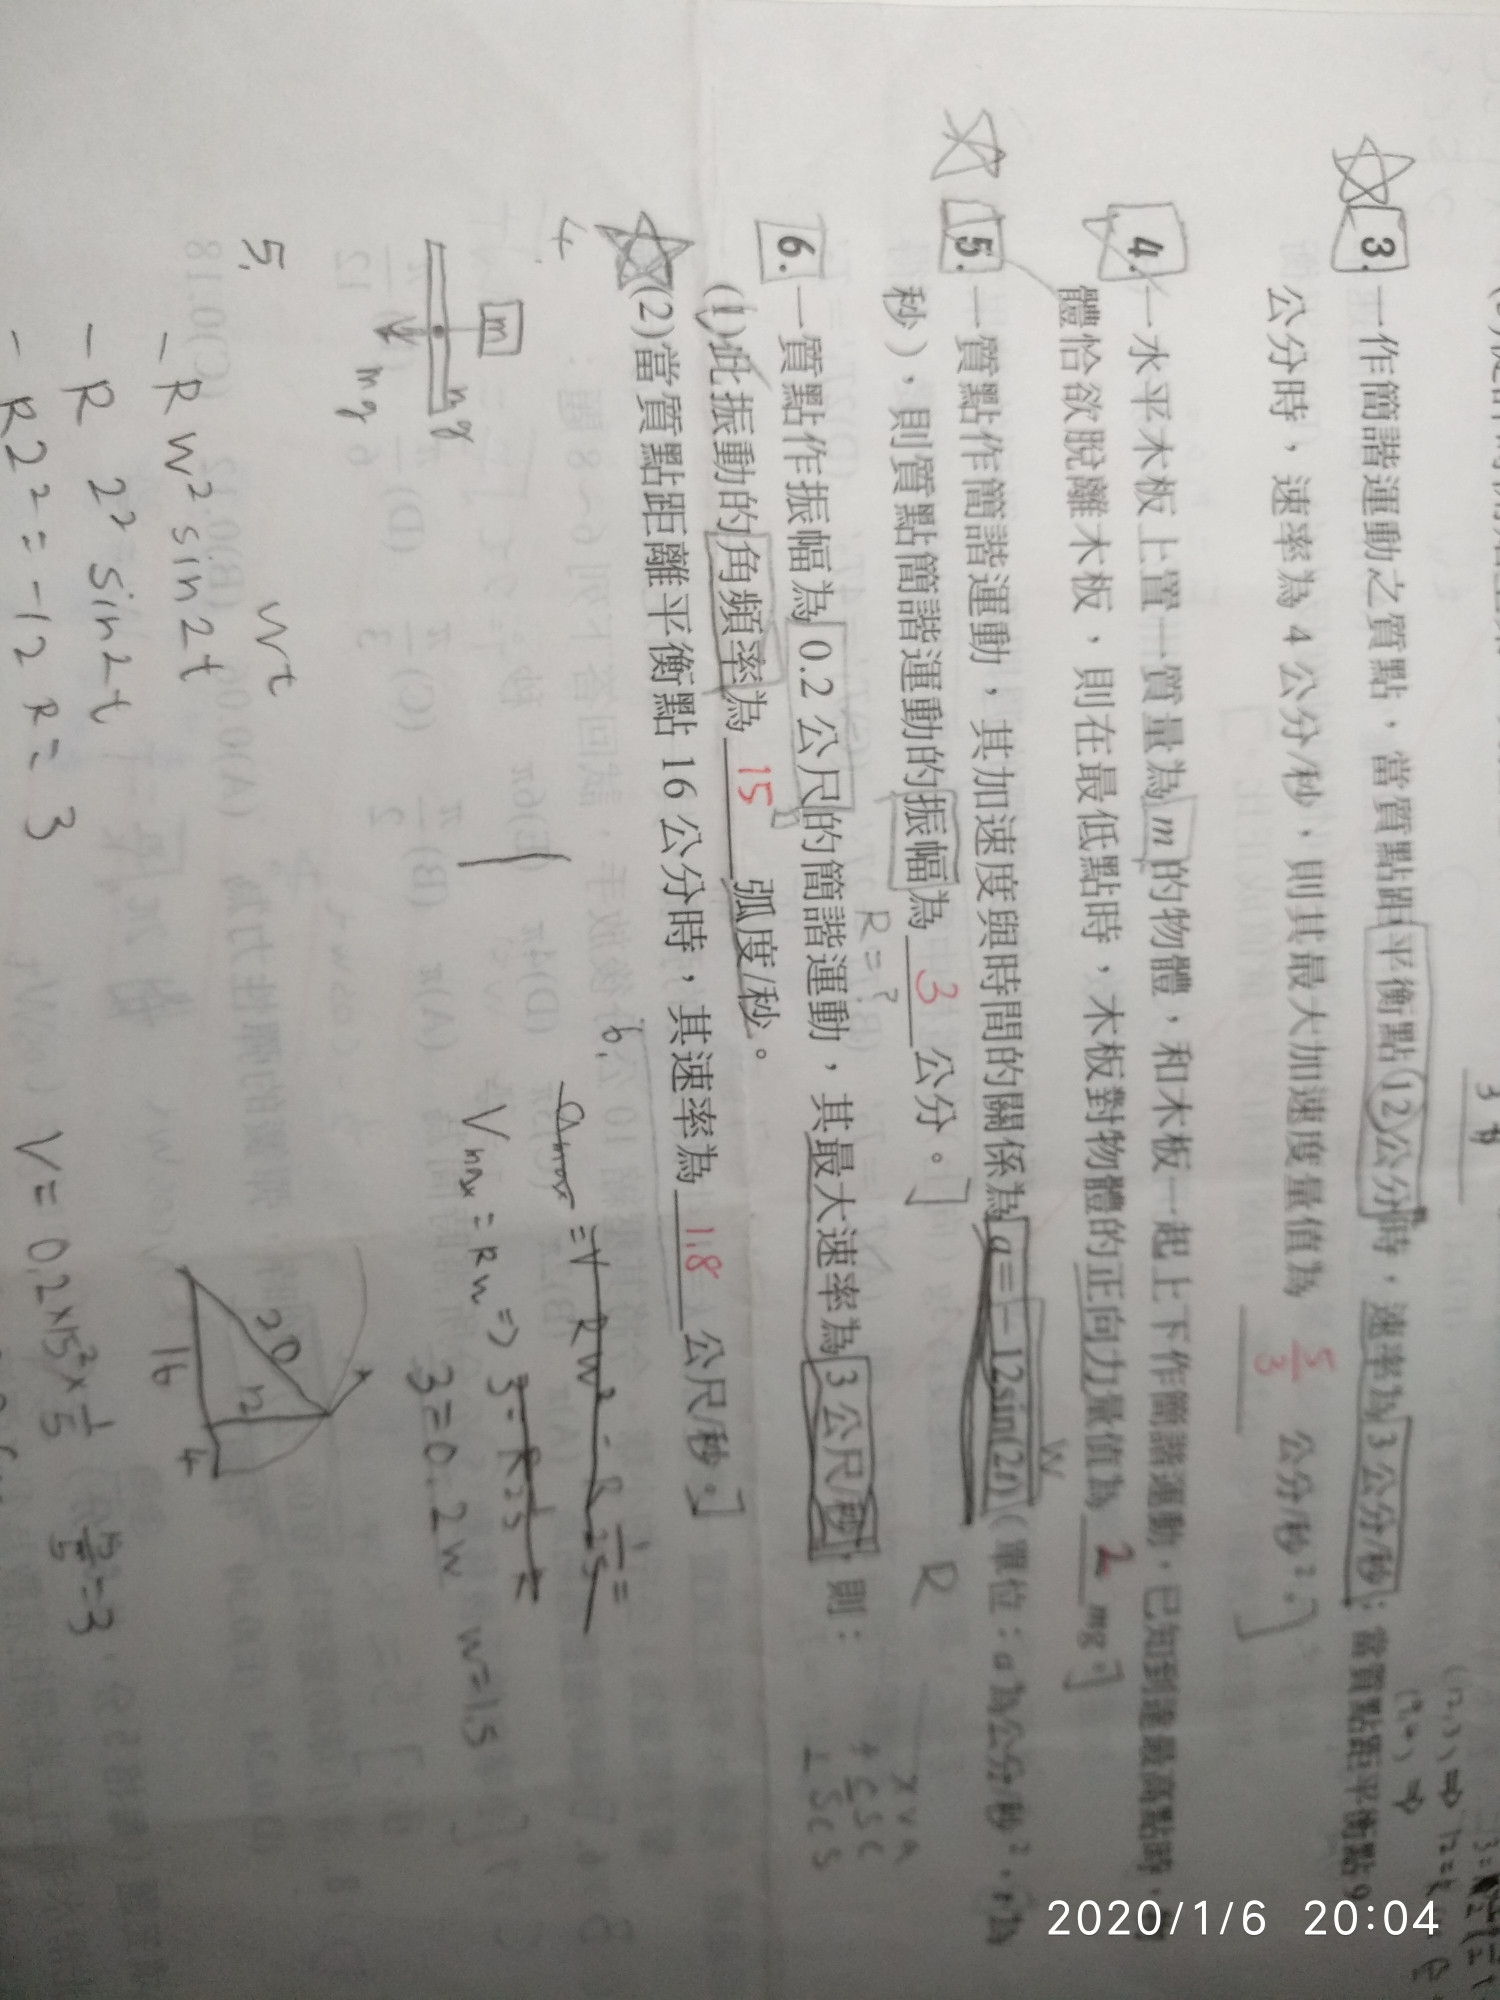 3. 一作簡諧運動之質點，當質點距平衡點12公分時，速率為3公分/秒；當質點距平衡點9
公分時，速率為4公分/秒，則其最大加速度量值為 5/3 公分/秒²。
4. 一水平木板上置一質量為m的物體，和木板一起上下作簡諧運動，已知到達最高點時，
體恰欲脫離木板，則在最低點時，木板對物體的正向力量值為 2 mg。
5. 一質點作簡諧運動，其加速度與時間的關係為a=-12sin(2t)(單位：a為公分/秒²，t為
W
秒)，則質點簡諧運動的振幅為 3 公分。
R=?
R
6. 一質點作振幅為0.2公尺的簡諧運動，其最大速率為3公尺/秒，則：
(1)此振動的角頻率為 15 弧度/秒。
(2)當質點距離平衡點16公分時，其速率為 1.8 公尺/秒。
x v a
4.
m
mg
mg
5.
wt
-Rw²sin2t
-R 2²sin2t
-R2²=-12 R=3
6.
Vmax=Rw⇒
3=0.2w w=15
20
12
16
4
V=0.2×15²×1/5
2020/1/6 20:04